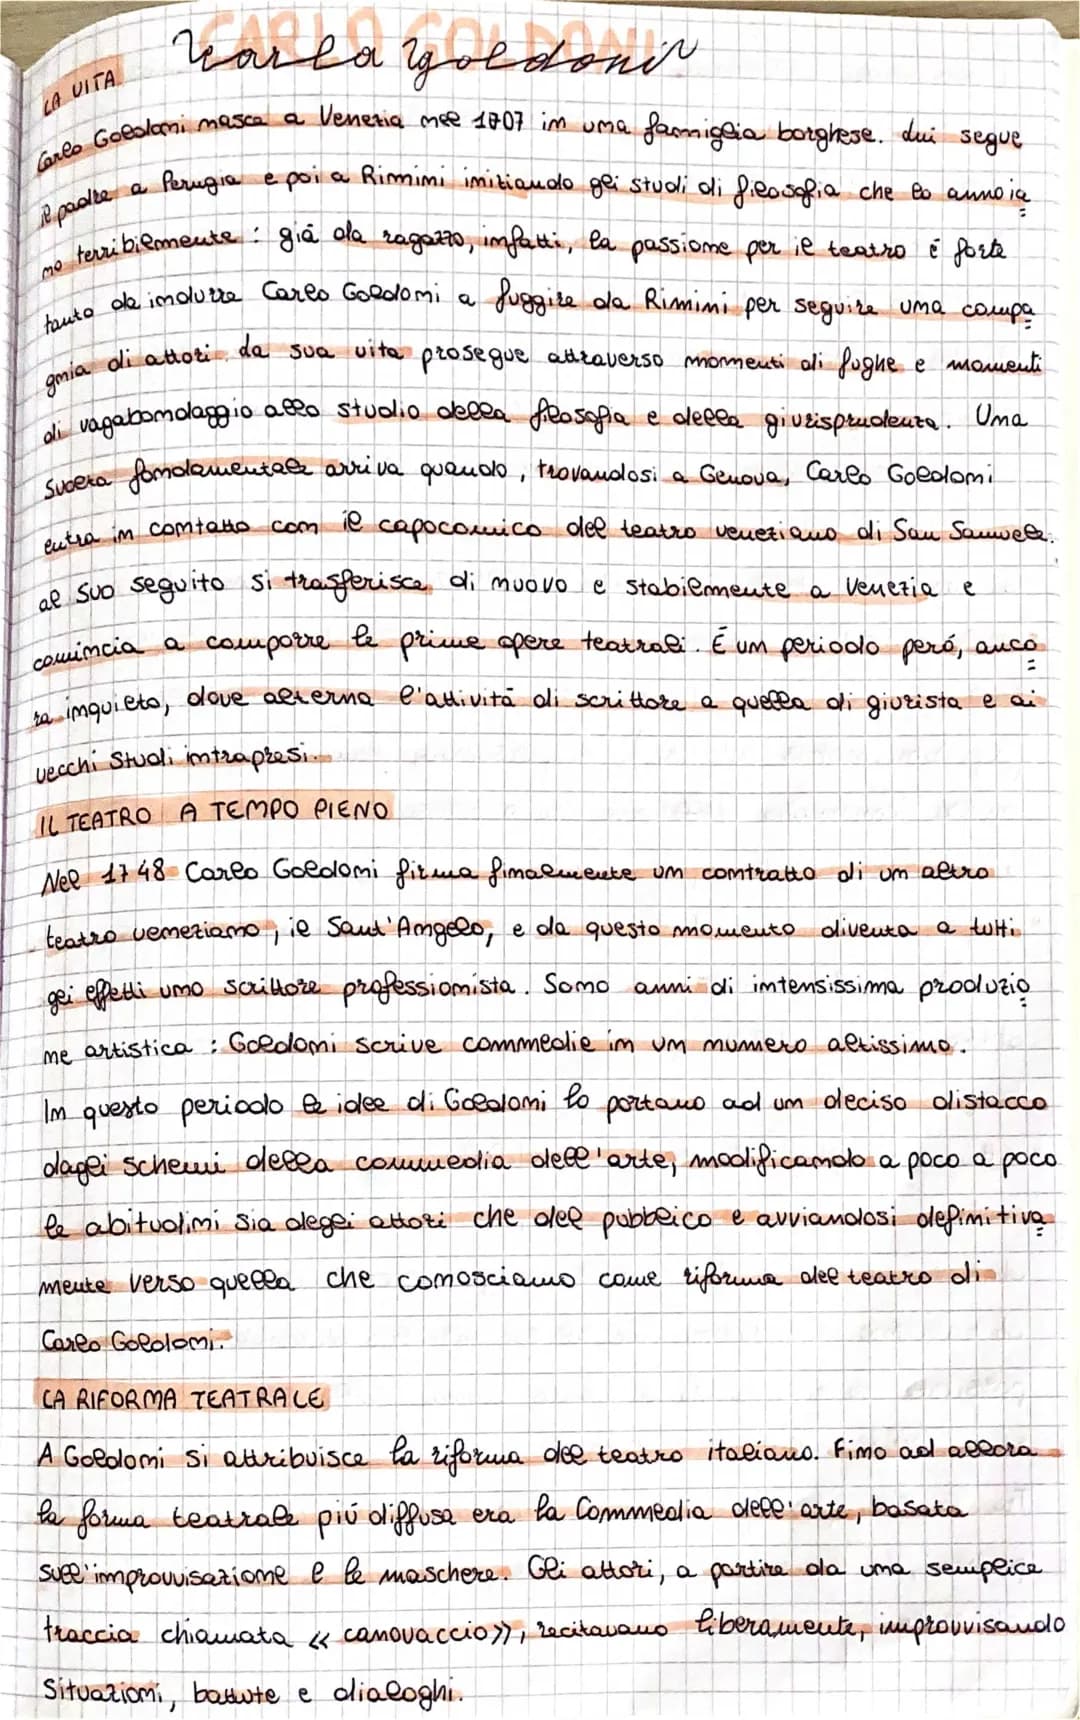 CARLO GOLDONI
Carlo goldoni
LA VITA
Carlo Goldoni nasce a Venezia nel 1707 in una famiglia borghese. Lui segue
il padre a Perugia e poi a Rimini iniziando gli studi di filosofia che lo annoia
no terribilmente : giá da ragazzo, infatti, la passione per il teatro é forte
tanto da indurre Carlo Goldoni a fuggire da Rimini per seguire una compa
gnia di attori. La sua vita prosegue attraverso momenti di fughe e momenti
di vagabondaggio allo studio della filosofia e della giurisprudenza. Una
Svolta fondamentale arriva quando, trovandosi a Genova, Carlo Goldoni
entra in contatto con il capocomico del teatro veneziano di San Samuele.
al suo seguito si trasferisce di nuovo e stabilmente a Venezia e
comincia a comporre le prime opere teatrali. É un periodo peró, anco
ra inquieto, dove alterna l'attivitá di scrittore a quella di giurista e ai
vecchi studi intrapresi.
IL TEATRO A TEMPO PIENO
Nel 1748 Carlo Goldoni firma finalmente un contratto di un altro
teatro veneziano, il Sant'Angelo, e da questo momento diventa a tutti
gli effetti uno scrittore professionista. Sono anni di intensissima produzio
ne artistica : Goldoni scrive commedie in un numero altissimo.
In questo periodo le idee di Goldoni lo portano ad un deciso distacco
dagli schemi della commedia dell'arte, modificando a poco a poco
le abitudini sia degli attori che del pubblico e avviandosi definitiva
mente verso quella che conosciamo come riforma del teatro di
Carlo Goldoni.
LA RIFORMA TEATRALE
A Goldoni si attribuisce la riforma del teatro italiano. Fino ad allora
la forma teatrale piú diffusa era la Commedia dell'arte, basata
sull'improvvisazione e le maschere. Gli attori, a partire da una semplice
traccia chiamata << canovaccio>>, recitavano liberamente, improvvisando
Situazioni, battute e dialoghi.